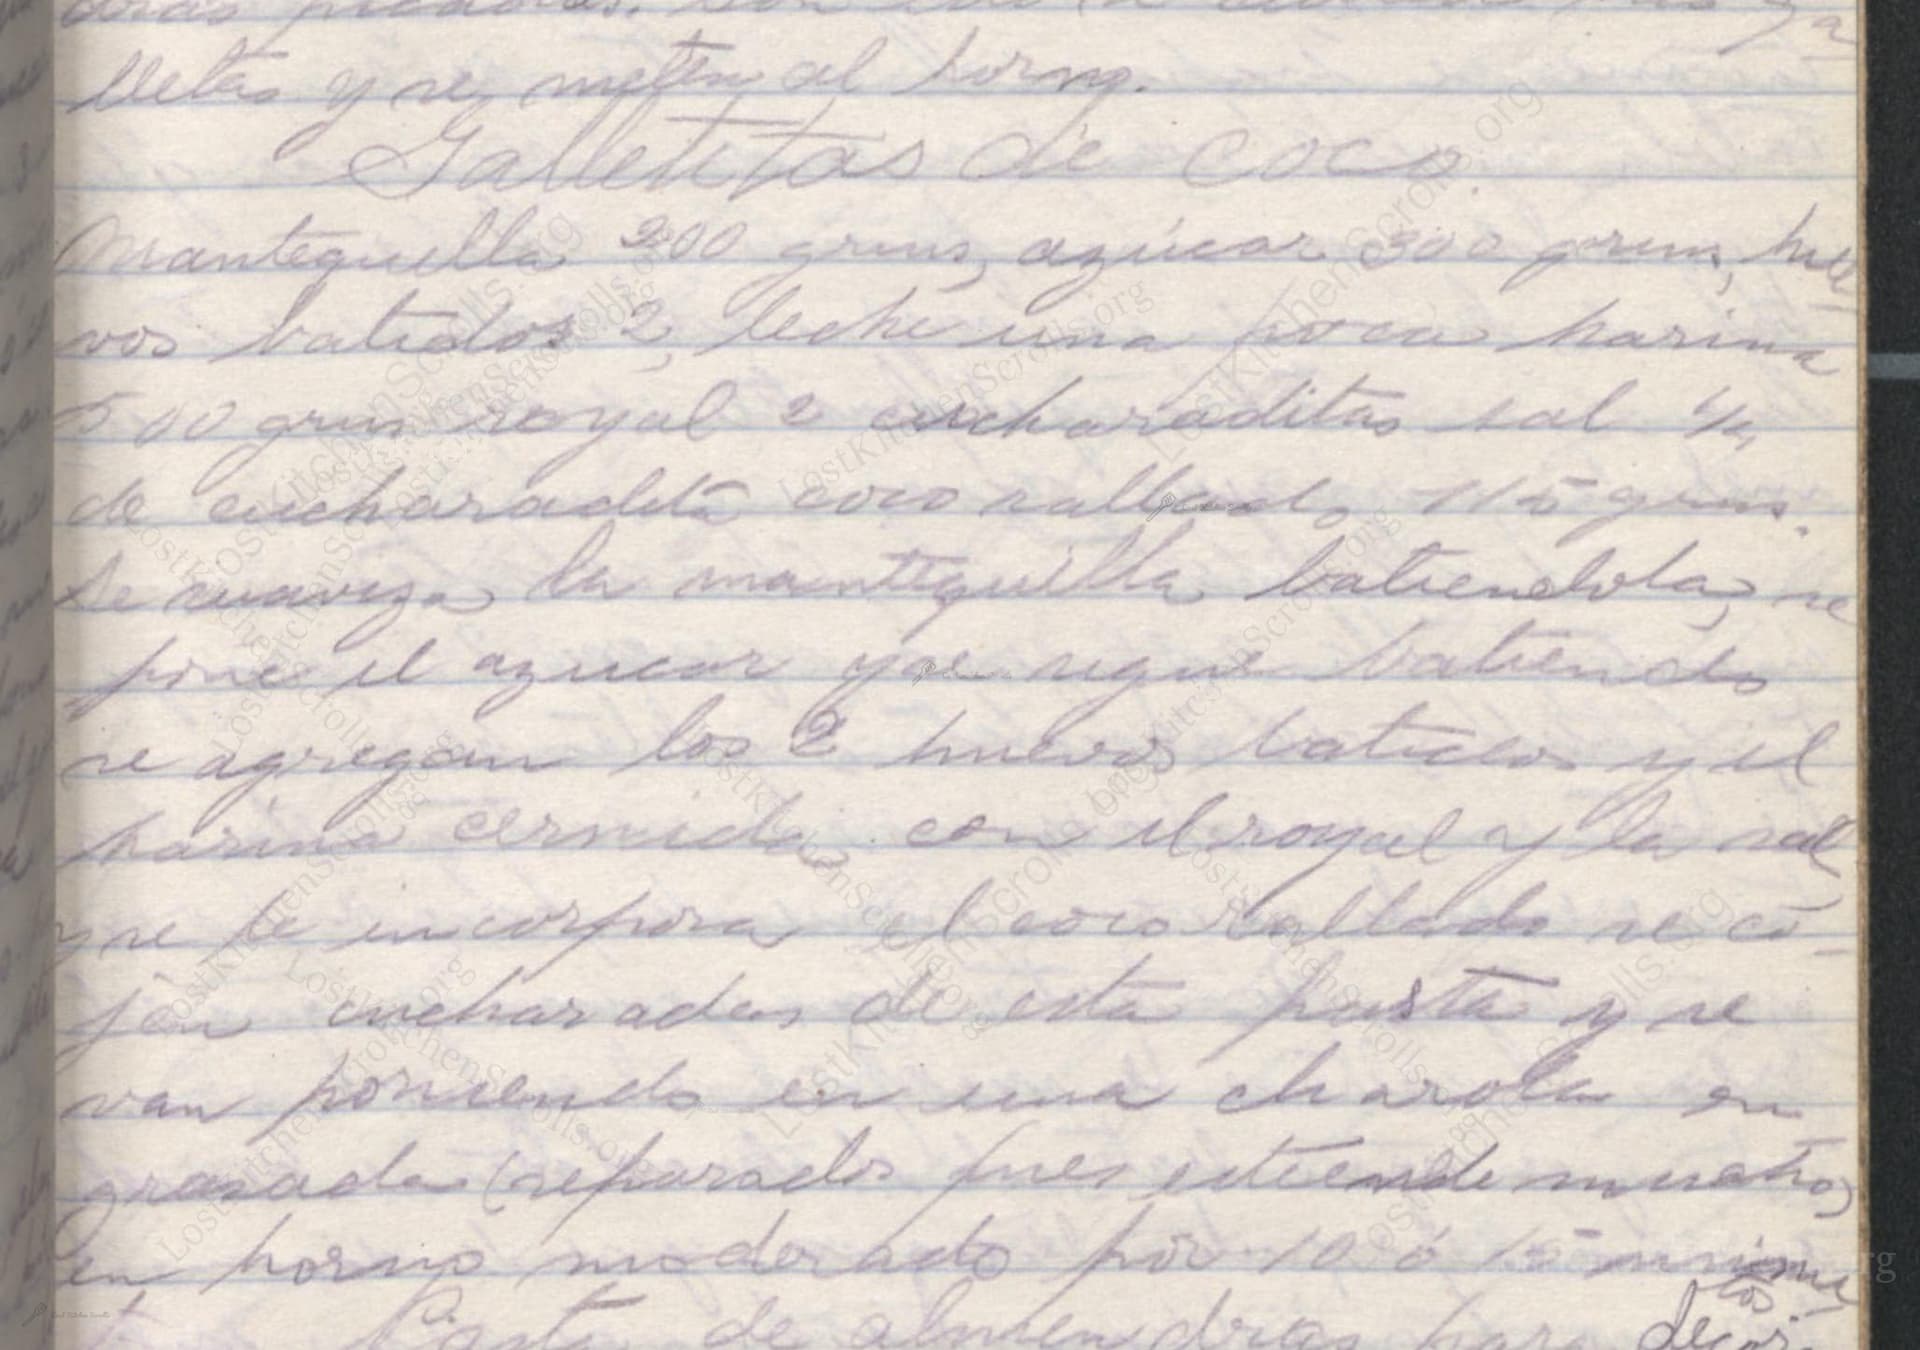 lletas y se meten al horno.
Galletitas de coco.
Mantequilla 200 grms, azúcar 300 grms, hue
vos batidos 2, leche una poca harina
500 grms royal 2 cucharaditas sal 1/4
de cucharadita coco rallado 115 grms.
Se suaviza la mantequilla batiendola, se
pone el azucar y se sigue batiendo
se agregan los 2 huevos batidos y el
harina cernida con el royal y la sal,
y se le incorpora el coco rallado se co-
jen cucharadas de esta pasta y se
van poniendo en una charola en
grasada (separados pues estiende mucho)
en horno moderado por 10 ó 15 minu
tos.
Pasta de almendras para decor